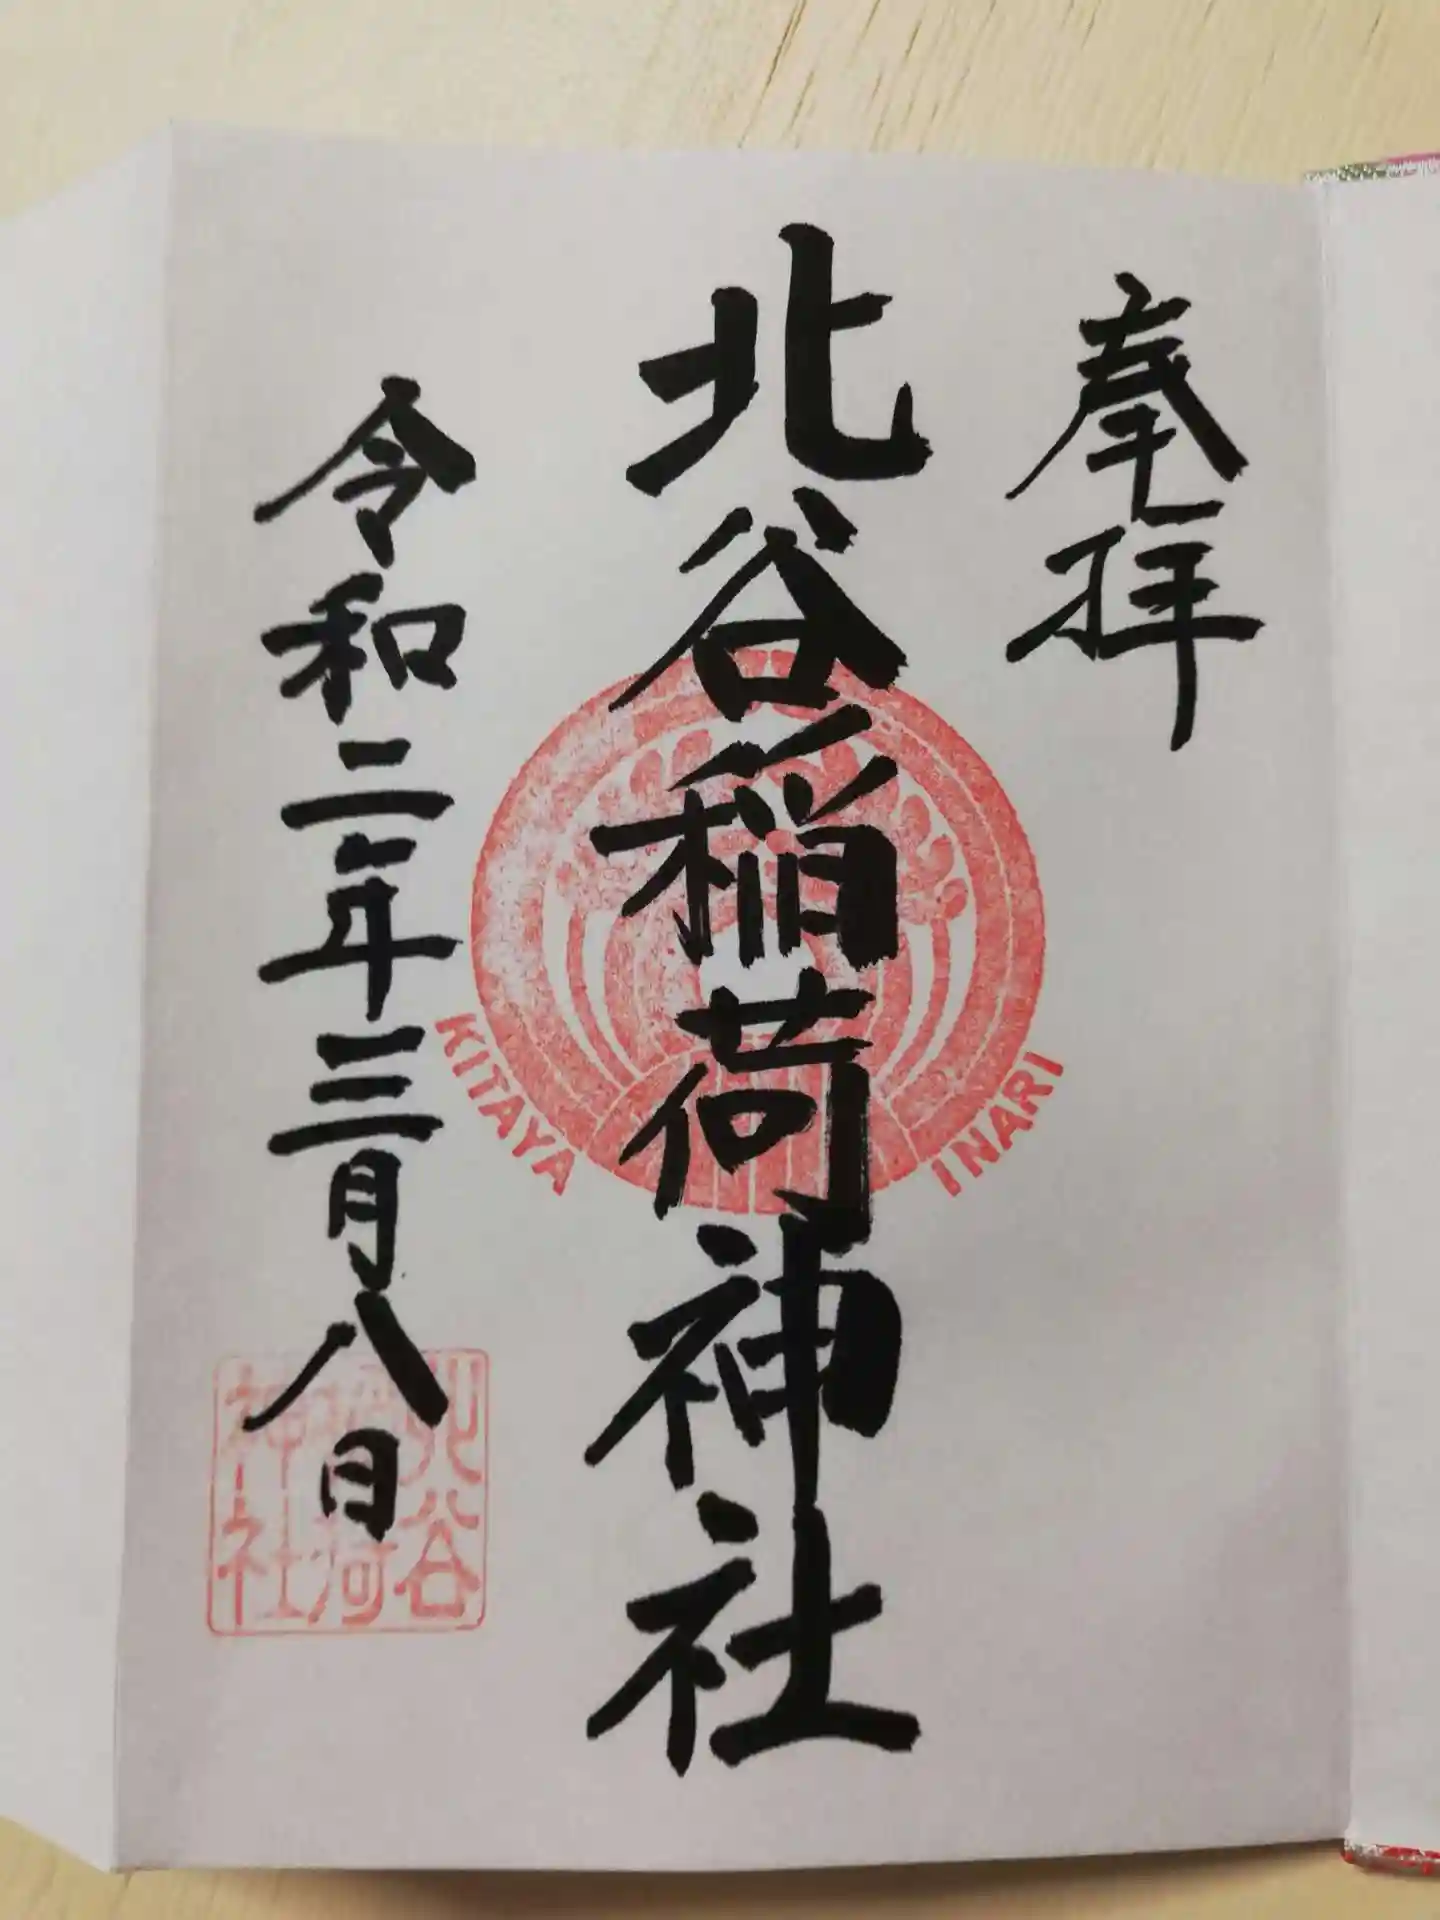 奉拝
北谷稲荷神社
KITAYA INARI
令和二年三月八日
北谷
稲荷
神社